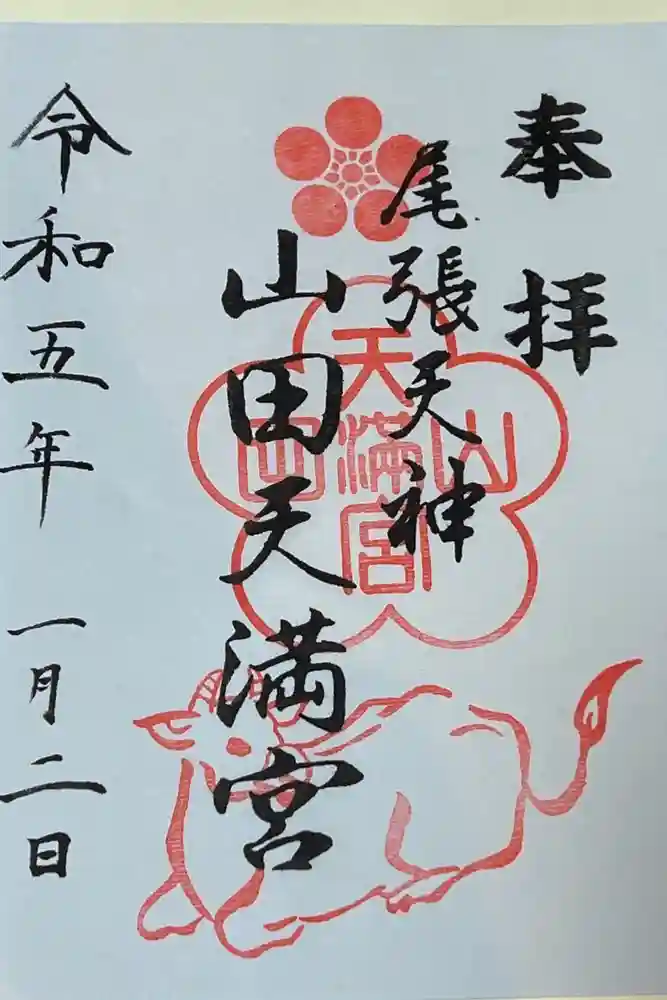 奉拝
尾張天神
山田天満宮
山田天満宮
令和五年 一月二日